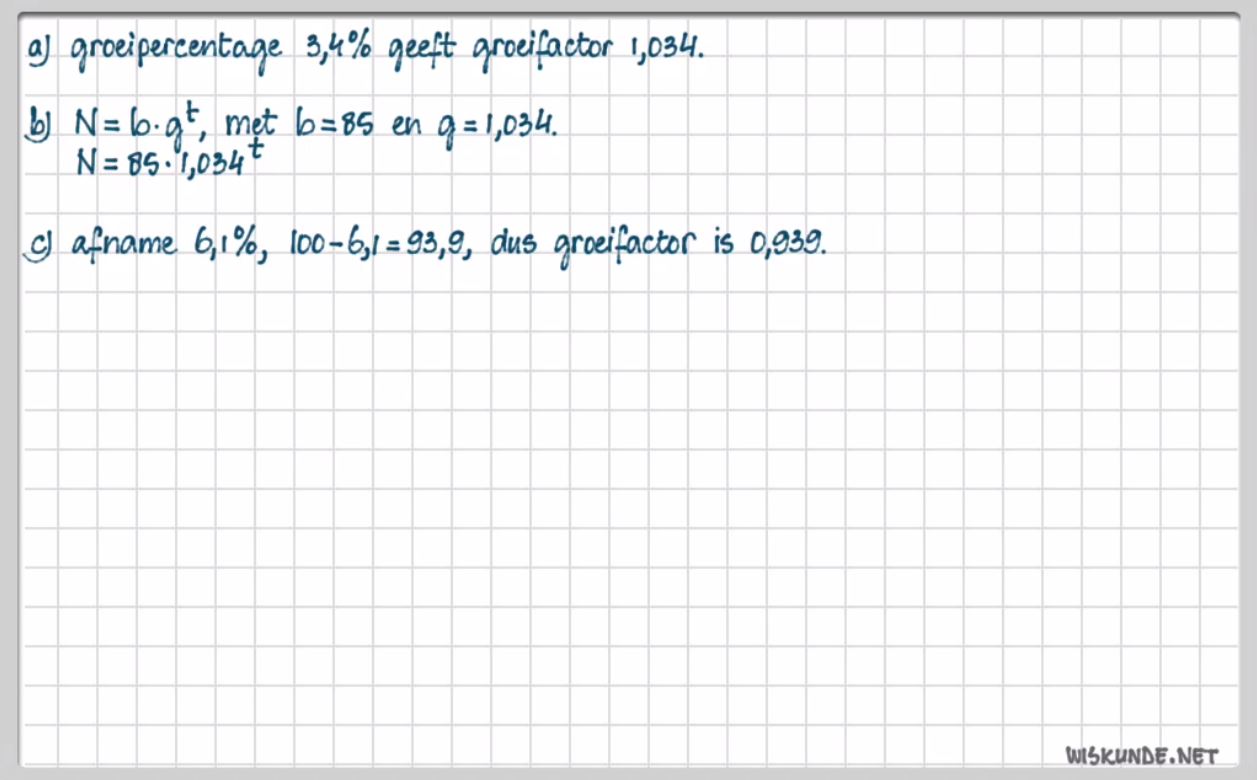 a) groeipercentage 3,4% geeft groeifactor 1,034.
b) N = b · gᵗ, met b = 85 en g = 1,034.
N = 85 · 1,034ᵗ
c) afname 6,1%, 100 - 6,1 = 93,9, dus groeifactor is 0,939.
WISKUNDE.NET